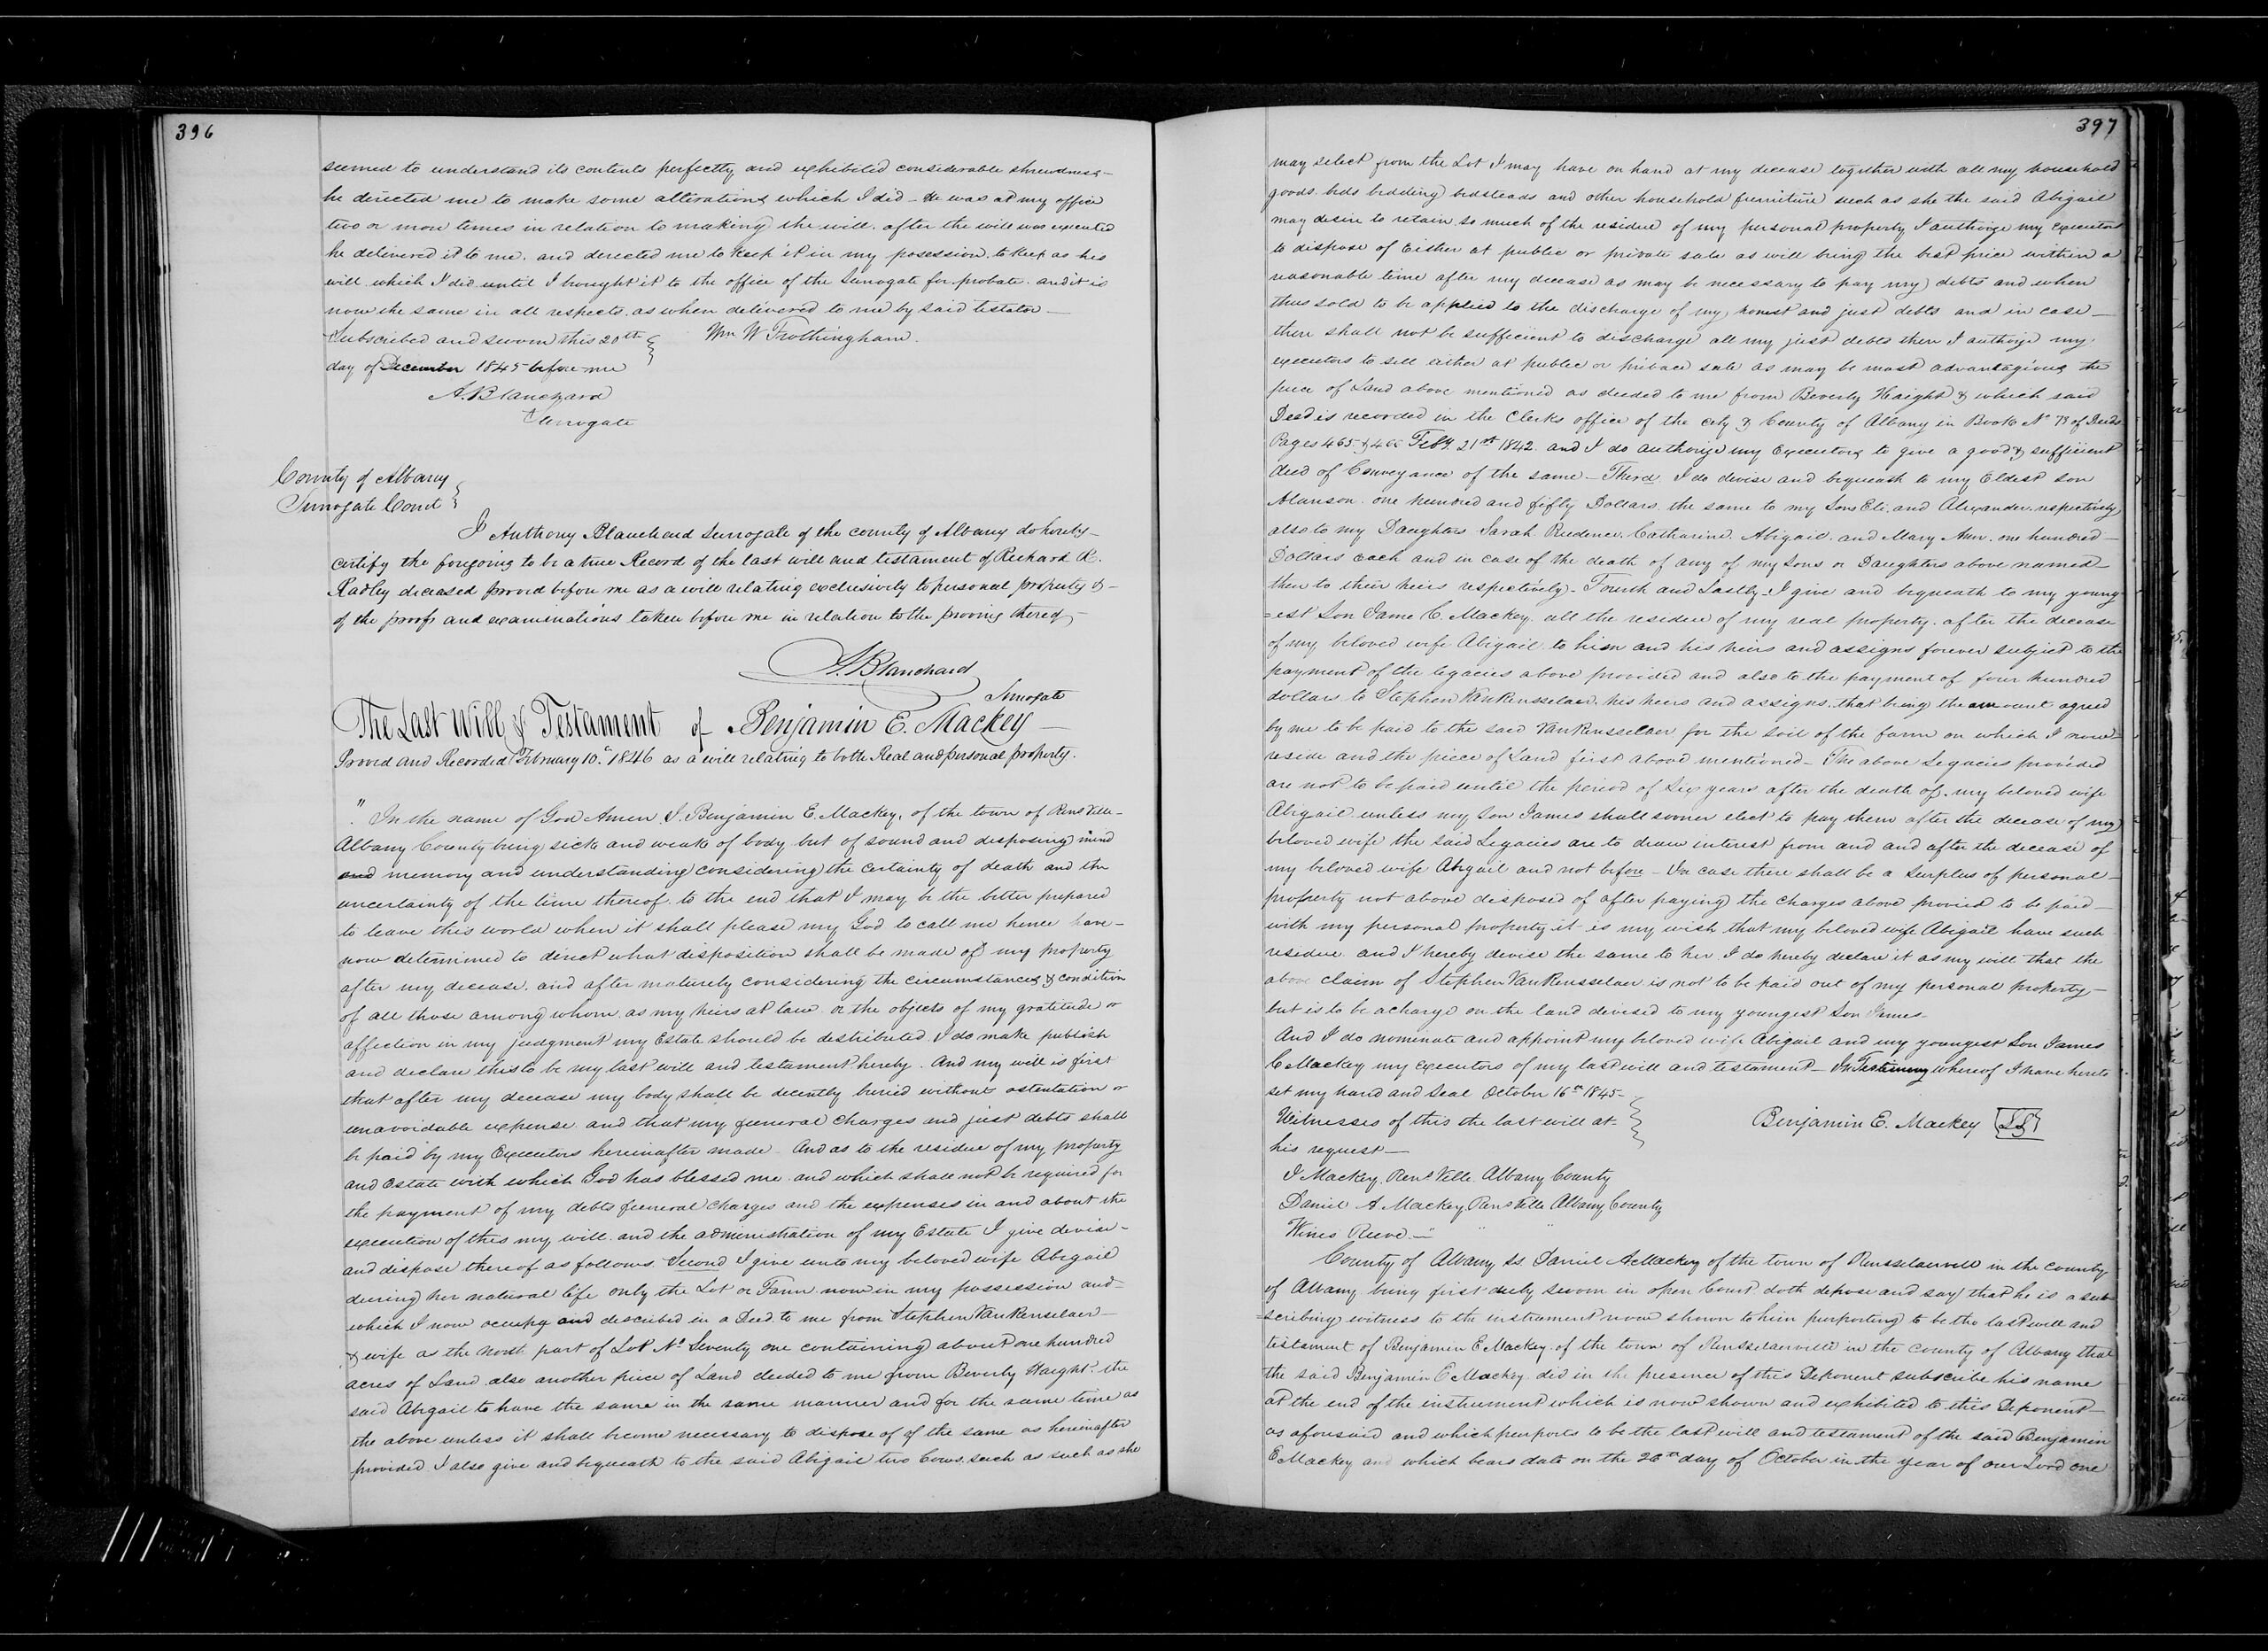 396
seemed to understand its contents perfectly and exhibited considerable shrewdness -
he directed me to make some alterations which I did - He was at my office
two or more times in relation to making the will. after the will was executed
he delivered it to me. and directed me to keep it in my posession. to keep as his
will which I did until I brought it to the office of the Surrogate for probate. and it is
now the same in all respects. as when delivered to me by said testator -
Subscribed and sworn this 20th } Wm W Frothingham.
day of December 1845 before me
A. Blanchard
Surrogate
County of Albany
Surrogate Court }
I Anthony Blanchard Surrogate of the county of Albany do hereby -
certify the foregoing to be a true Record of the last will and testament of Richard R.
Radley deceased proved before me as a will relating exclusively to personal property & -
of the proofs and examinations taken before me in relation to the proving thereof
A. Blanchard
Surrogate
The Last Will & Testament of Benjamin E. Mackey -
Proved and Recorded February 10th 1846 as a will relating to both Real and personal property.
" In the name of God Amen I. Benjamin E. Mackey, of the town of Rens Ville -
Albany County being sick and weak of body but of sound and disposing mind
and memory and understanding considering the certainty of death and the
uncertainty of the time thereof to the end that I may be the better prepared
to leave this world when it shall please my God to call me hence have -
now determined to direct what disposition shall be made of my property
after my decease. and after maturely considering the circumstances & condition
of all those among whom. as my heirs at law or the objects of my gratitude or
affection in my judgment my Estate should be destributed I do make publish
and declare this to be my last will and testament hereby. And my will is first
that after my decease my body shall be decently buried without ostentation or
unavoidable expense. and that my funeral charges and just debts shall
be paid by my Executors hereinafter made - And as to the residue of my property
and estate with which God has blessed me. and which shall not be required for
the payment of my debts funeral charges and the expenses in and about the
execution of this my will. and the administration of my Estate I give devise -
and dispose thereof as follows. Second I give unto my beloved wife Abigail
during her natural life only the Lot or Farm now in my possession and -
which I now occupy and described in a Deed to me from Stephen Van Renselaer -
& wife as the North part of Lot No Seventy one containing about one hundred
acres of Land also another piece of Land deeded to me from Beverly Haight. the
said Abigail to have the same in the same manner and for the same time as
the above unless it shall become necessary to dispose of of the same as hereinafter
provided. I also give and bequeath to the said Abigail two Cows. such as such as she
397
may select from the Lot I may have on hand at my decease together with all my household
goods. beds bedding bedsteads and other household furniture such as she the said Abigail
may desire to retain. so much of the residue of my personal property I authorize my executors
to dispose of Either at public or private sale as will bring the best price within a
reasonable time after my decease as may be necessary to pay my debts and when
thus sold to be applied to the discharge of my honest and just debts and in case -
there shall not be sufficient to discharge all my just debts then I authorize my
executors to sell either at public or private sale as may be most advantagious the
piece of Land above mentioned as deeded to me from Beverly Haight & which said
Deed is recorded in the Clerks office of the city & County of Albany in Book No 73 of Deeds
Pages 465. & 466 Feby 21st 1842. and I do authorize my Executors to give a good & sufficient
deed of Conveyance of the same - Third. I do devise and bequeath to my Eldest son
Alanson. one hundred and fifty Dollars. the same to my Sons Eli. and Alexander. respectively
also to my Daughters Sarah. Prudence. Catharine. Abigail. and Mary Ann. one hundred -
Dollars each and in case of the death of any of my Sons or Daughters above named -
then to their heirs respectively - Fourth and Lastly - I give and bequeath to my young
=est Son Jame C. Mackey. all the residue of my real property. after the decease
of my beloved wife Abigail to him and his heirs and assigns forever subject to the
payment of the legacies above provided and also to the payment of four hundred
dollars to Stephen Van Rensselaer. his heirs and assigns. that being the amount agreed
by me to be paid to the said Van Rensselaer for the soil of the farm on which I now -
reside and the piece of Land first above mentioned - The above Legacies provided
are not to be paid until the period of Six years after the death of. my beloved wife
Abigail unless my Son James shall sooner elect to pay them after the decease of my
beloved wife the said Legacies are to draw interest from and and after the decease of
my beloved wife Abigail and not before - In case there shall be a surplus of personal -
property not above disposed of after paying the charges above provied to be paid -
with my personal property it is my wish that my beloved wife Abigail have such
residue. and I hereby devise the same to her. I do hereby declare it as my will that the
above claim of Stephen Van Rensselaer is not to be paid out of my personal property -
but is to be a charge on the land devised to my youngest Son James -
And I do nominate and appoint my beloved wife Abigail and my youngest Son James
C Mackey my executors of my last will and testament - In Testimony whereof I have hereto
set my hand and seal October 16th 1845 -
Witnesses of this the last will at - } Benjamin E. Mackey [LS]
his request -
I Mackey. Rens Ville. Albany County
Daniel A Mackey Rens Ville Albany County
Wines Reeve - " " "
County of Albany ss. Daniel A Mackey of the town of Rensselaerville in the county
of Albany being first duly sworn in open Court doth depose and say that he is a sub
=scribing witness to the instrument now shown to him purporting to be the last will and
testament of Benjamin E Mackey. of the town of Rensselaerville in the County of Albany that
the said Benjamin E Mackey did in the presence of this Deponent subscribe his name
at the end of the instrument which is now shown and exhibited to this Deponent -
as aforesaid and which purports to be the last will and testament of the said Benjamin
E Mackey and which bears date on the 20th day of October in the year of our Lord one